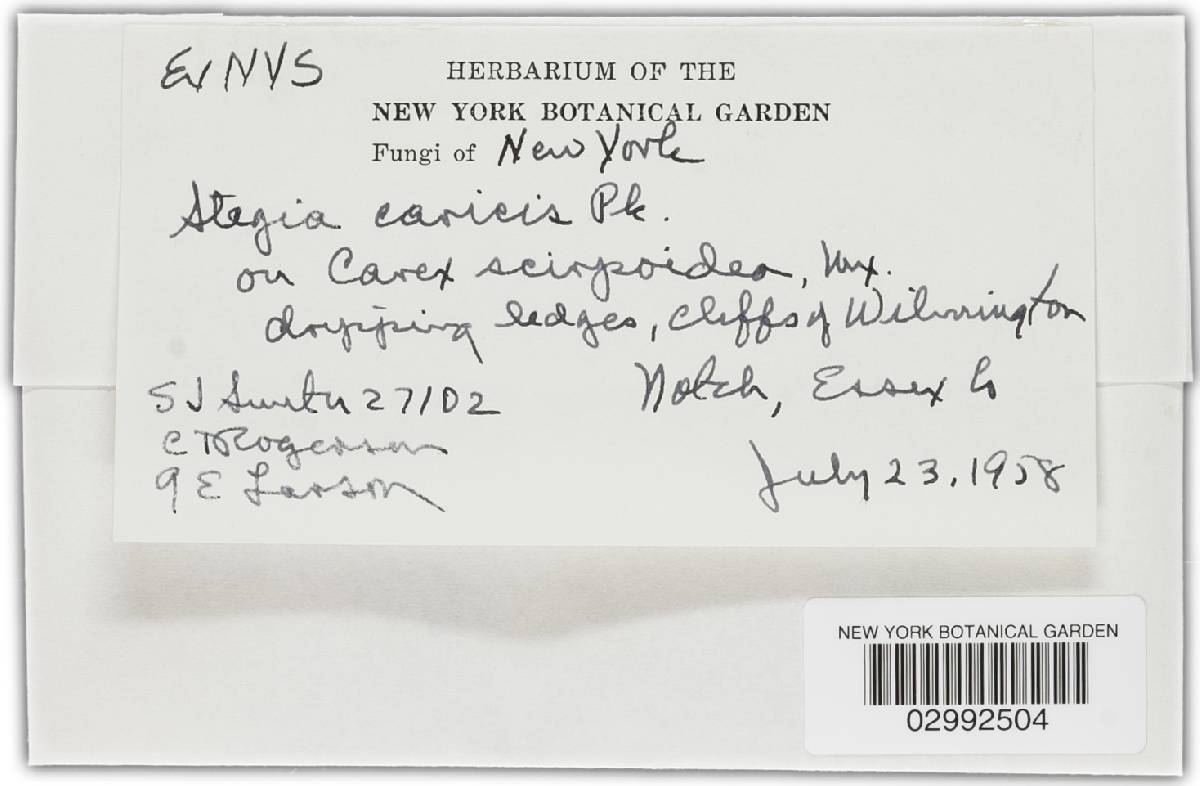 Ex NYS
HERBARIUM OF THE
NEW YORK BOTANICAL GARDEN
Fungi of New York
Stegia caricis Pk.
on Carex scirpoidea, Mx.
dripping ledges, cliffs of Wilmington
Notch, Essex Co
S J Smith 27102
C T Rogerson
E Larson
July 23, 1958
NEW YORK BOTANICAL GARDEN
02992504